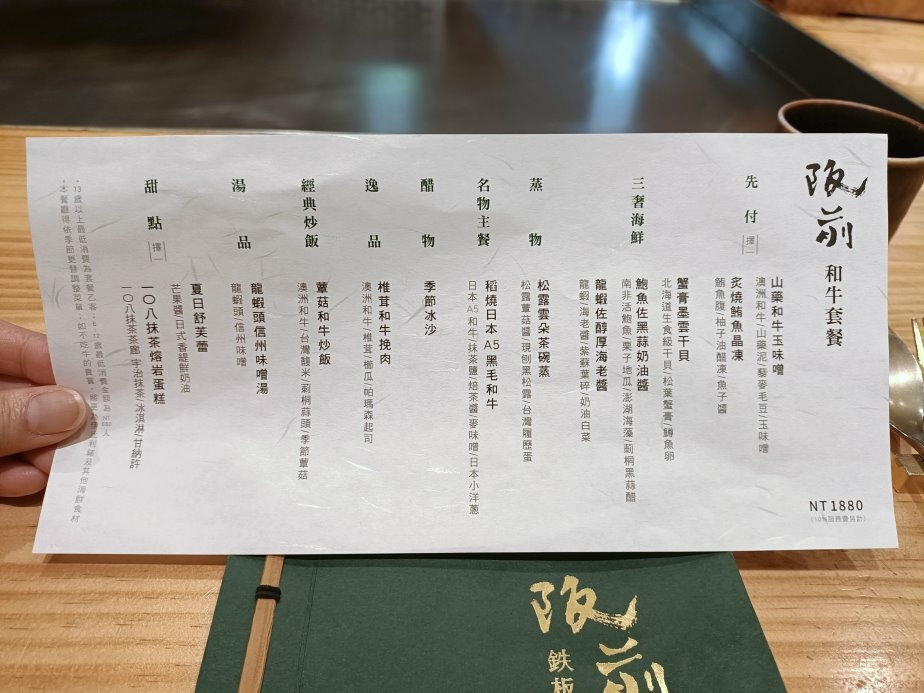 阪前
和牛套餐
NT1880
(10%服務費另計)
先付
擇一
山藥和牛玉味噌
澳洲和牛/山藥泥/藜麥毛豆/玉味噌
炙燒鮪魚晶凍
鮪魚腹/柚子油醋凍/魚子醬
三奢海鮮
蟹膏墨雲干貝
北海道生食級干貝/松葉蟹膏/鱒魚卵
鮑魚佐黑蒜奶油醬
南非活鮑魚/栗子地瓜/澎湖海藻/莿桐黑蒜醋
龍蝦佐醇厚海老醬
龍蝦/海老醬/紫蘇葉碎/奶油白菜
蒸物
松露雲朵茶碗蒸
松露蕈菇醬/現刨黑松露/台灣履歷蛋
名物主餐
稻燒日本A5黑毛和牛
日本A5和牛/抹茶鹽/焙茶醬/麥味噌/日本小洋蔥
醋物
季節冰沙
逸品
椎茸和牛挽肉
澳洲和牛/椎茸/櫛瓜/帕瑪森起司
經典炒飯
蕈菇和牛炒飯
澳洲和牛/台灣馥米/莿桐蒜頭/季節蕈菇
湯品
龍蝦頭信州味噌湯
龍蝦頭/信州味噌
甜點
擇一
夏日舒芙蕾
芒果醬/日式香緹鮮奶油
一〇八抹茶熔岩蛋糕
一〇八抹茶茶廊/宇治抹茶/冰淇淋/甘納許
・13歲以上最低消費為套餐乙客;6-12歲最低消費金額為NT880/人
・本餐廳得依季節更替調整菜單;如不吃牛的貴賓,將更 伊比利豬及其他海鮮食材
阪前
鉄板